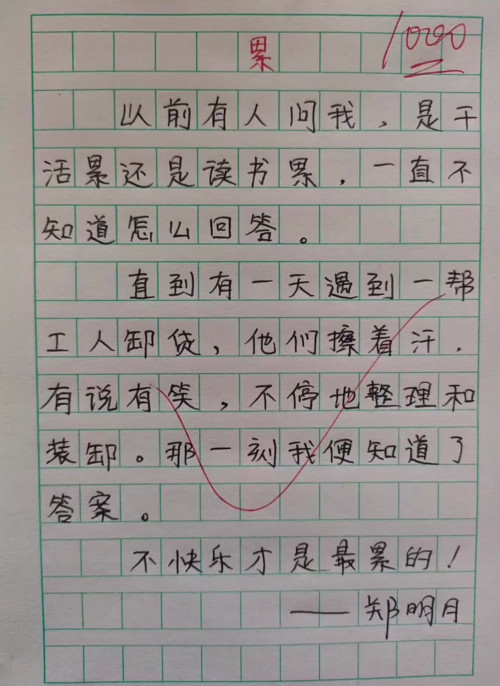 1000
累
以前有人问我，是干
活累还是读书累，一直不
知道怎么回答。
直到有一天遇到一帮
工人卸货，他们擦着汗，
有说有笑，不停地整理和
装卸。那一刻我便知道了
答案。
不快乐才是最累的！
——郑明月